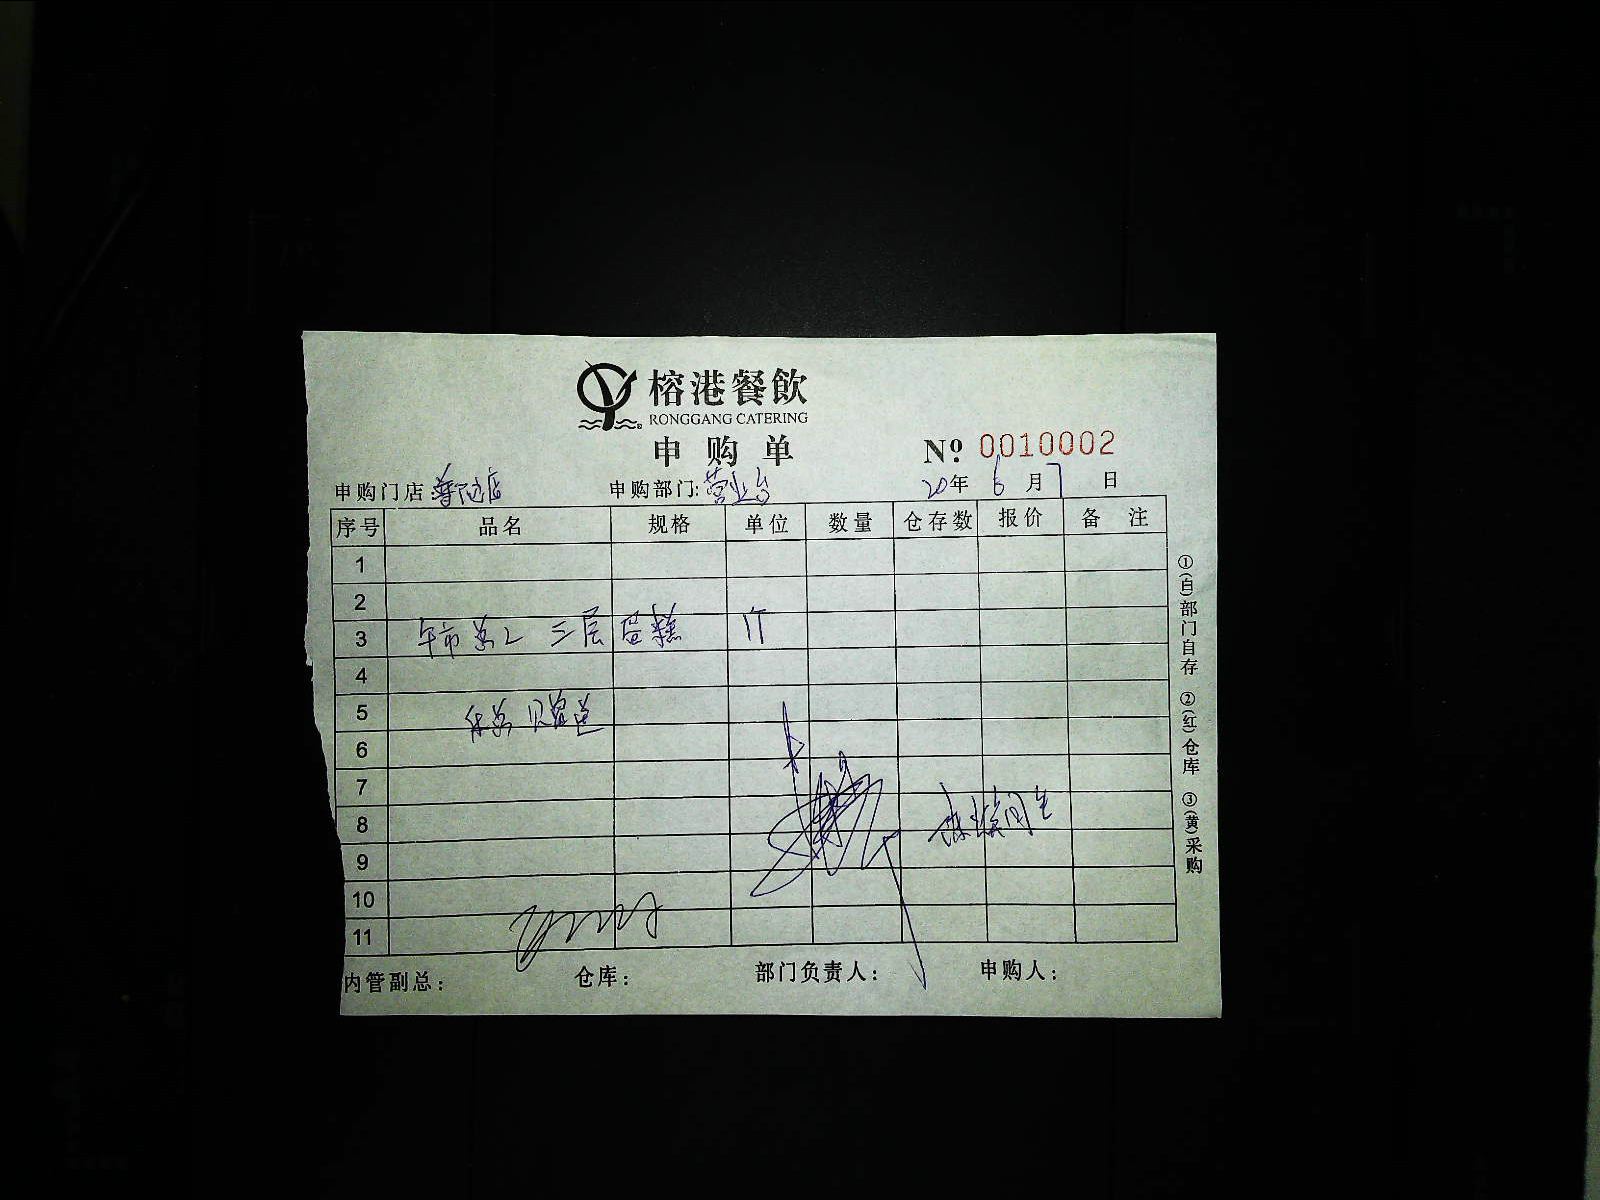 榕港餐飲
RONGGANG CATERING
申购单
№ 0010002
申购门店 申购部门: 营业台 20年 6月 7日
序号 品名 规格 单位 数量 仓存数 报价 备注
1
2
3 午市 三层蛋糕 1个
4
5
6
7
8
9
10
11
内管副总: 仓库: 部门负责人: 申购人:
①(白)部门自存 ②(红)仓库 ③(黄)采购